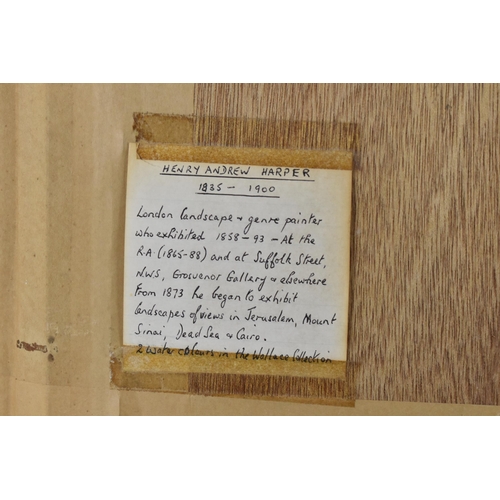 HENRY ANDREW HARPER
1835 - 1900
London landscape & genre painter
who exhibited 1858-93 - At the
R.A. (1865-88) and at Suffolk Street,
N.W.S, Grosvenor Gallery & elsewhere
From 1873 he began to exhibit
landscapes of views in Jerusalem, Mount
Sinai, Dead Sea & Cairo.
2 water colours in the Wallace Collection